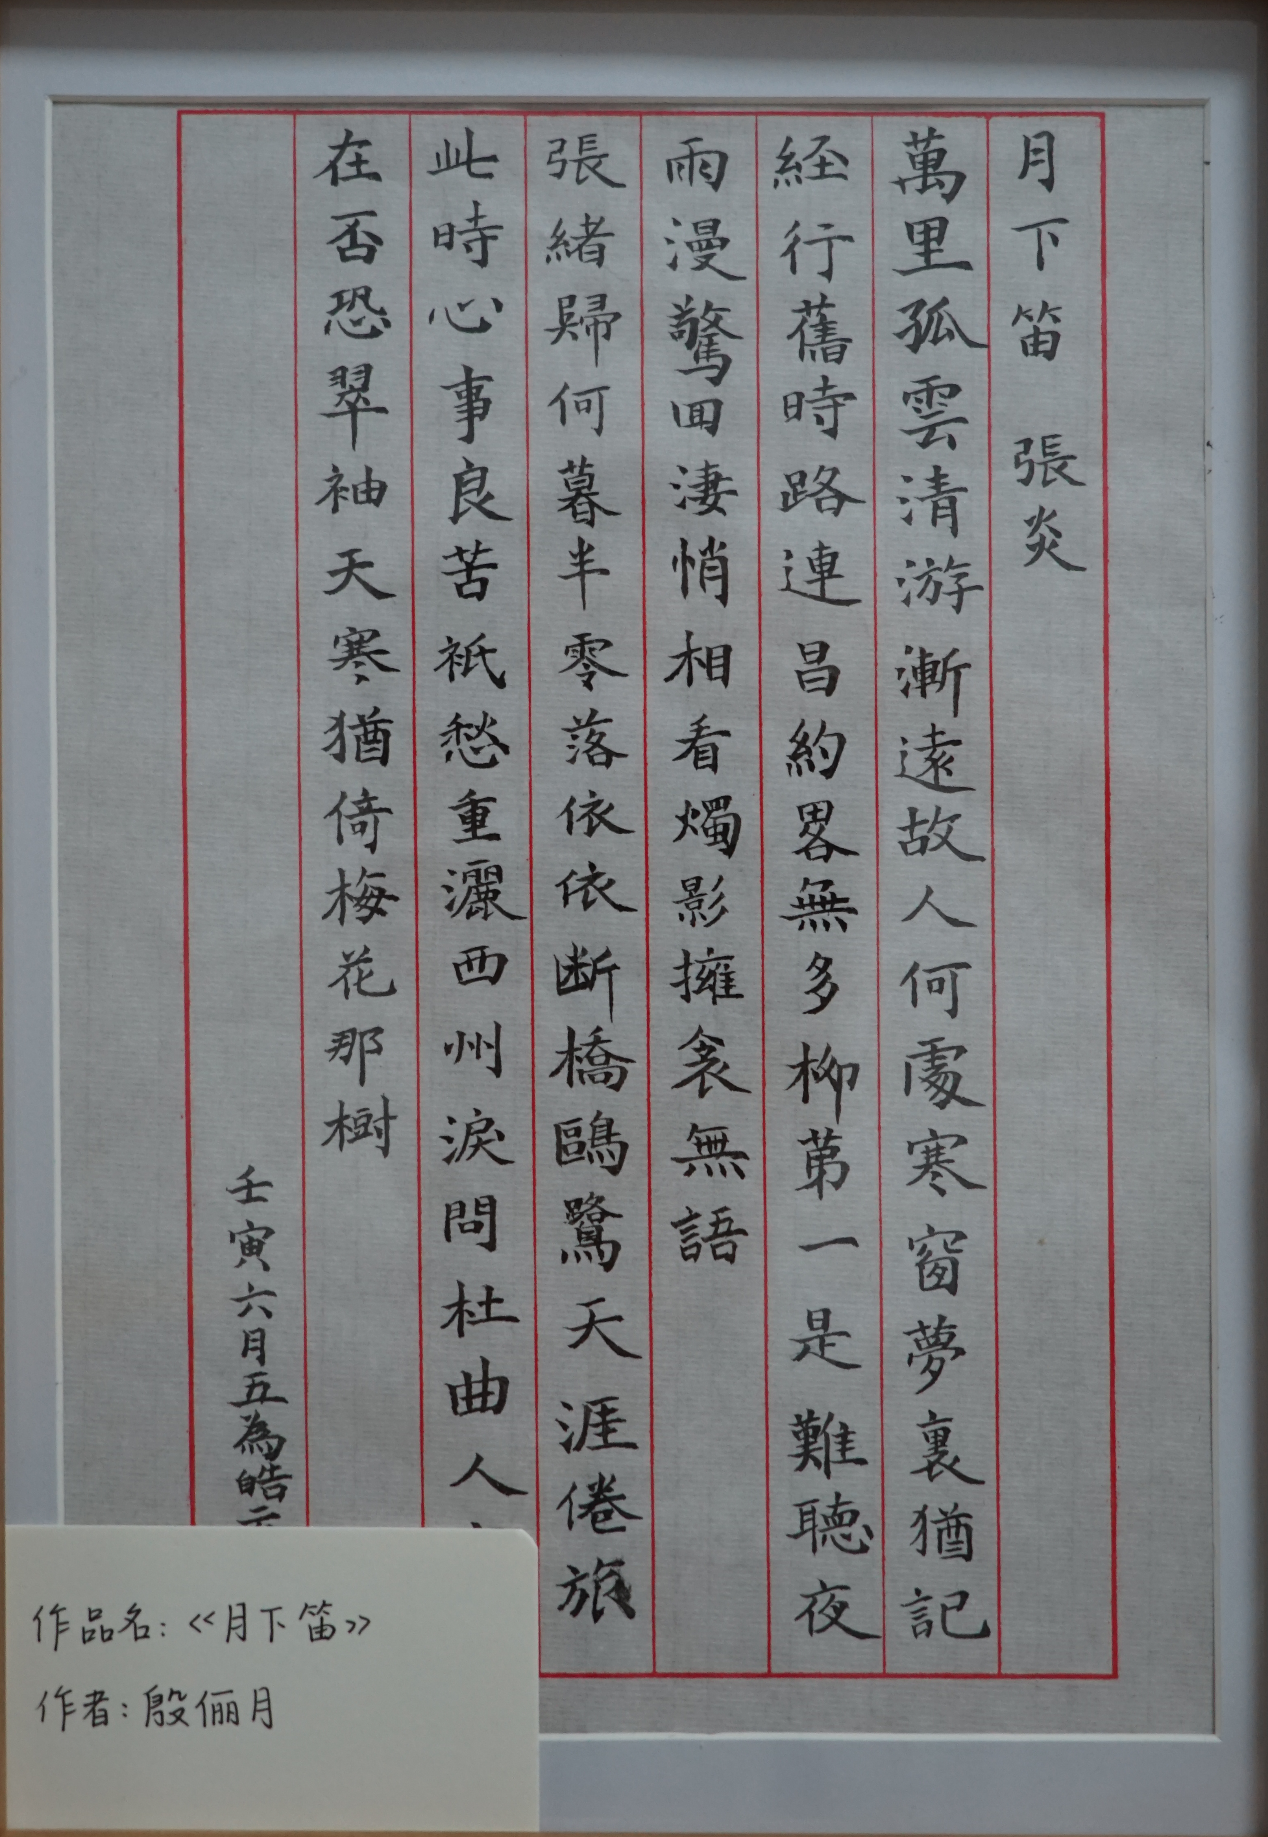 月下笛 張炎
萬里孤雲清游漸遠故人何處寒窗夢裏猶記
経行舊時路連昌約畧無多柳苐一是難聽夜
雨漫驚回淒悄相看燭影擁衾無語
張緒歸何暮半零落依依断橋鷗鷺天涯倦旅
此時心事良苦祇愁重灑西州淚問杜曲人
在否恐翠袖天寒猶倚梅花那樹
壬寅六月五為皓
作品名:《月下笛》
作者:殷俪月